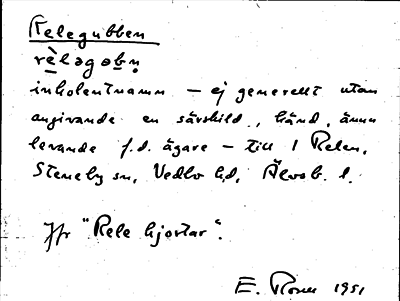 Relegubben
rèləgəbn̥
inkolentnamn – ej generellt utan
angivande en särskild, känd, ännu
levande f.d. ägare – till 1 Relen,
Steneby sn, Vedbo hd, Älvsb. l.
Jfr "Rele hjortar".
E. 1951